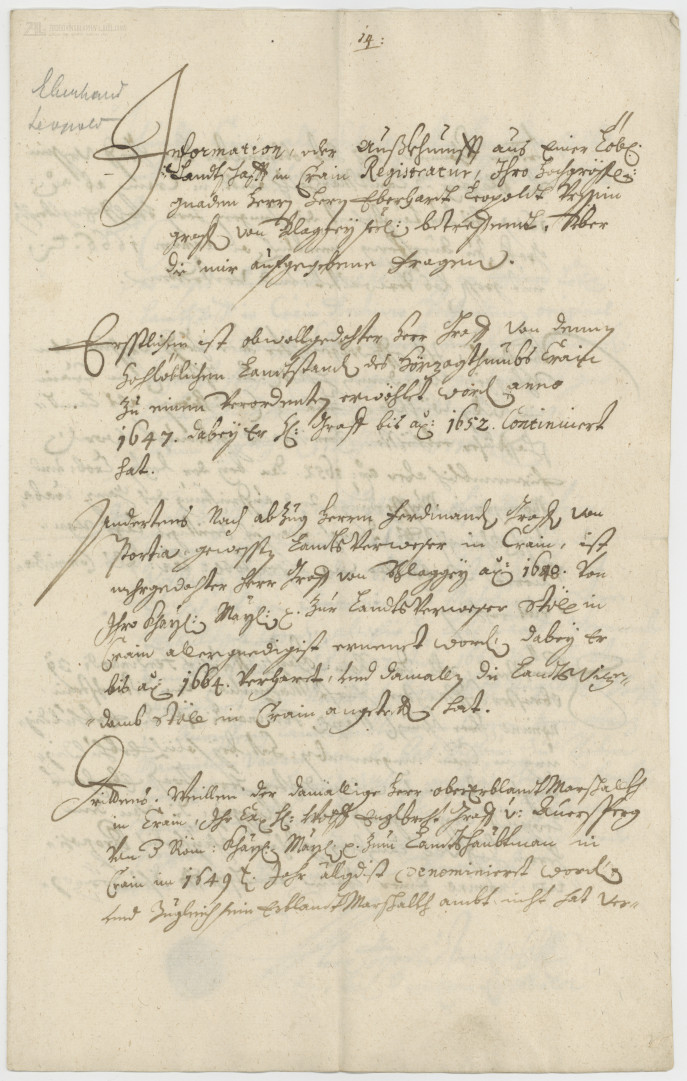 14:
Eberhard
Leopold
Information, oder Außkhunfft aus Einer Löbl:
Landtschafft in Crain Registratur, Ihro hochgräffl:
gnaden Herrn Herrn Eberhardt Leopoldt Ursin
graff von Blaggey seel: betreffendt, Über
die mir aufgegebene Fragen.
Erstlichen ist obwollgedachter Herr Graff von denen
Hochlöblichen Landtständ des Hörzogthumbs Crain
zu einem Verordenten erwöhlet word anno
1647. dabey Er H: Graff bis aõ: 1652. Continuiert
hat.
Andertens Nach abzug Herrn Ferdinand Graff von
Portia gewessten LandtsVerweser in Crain, ist
mehrgedachter Herr Graff von Blaggey aõ: 1648. Von
Ihro Khayl: Mayl: zur LandtsVerweser Stöll in
Crain allergnedigist ernenet word, dabey Er
bis aõ: 1664. Verharret, und damallen die LandtsVice-
-dombs Stöll in Crain angetretten hat.
Drittens. Weillen der damallige Herr oberErblandtMarschalch
in Crain, Ihr Ex: H: Wolff Englbrecht Graff v: Auersperg
Von Röm: Khayl: Mayl: zum Landtshaubtman in
Crain im 1649 Jahr allgdist denominieret word
und Zugleich sein ErblandtMarschalch ambt nicht hat Ver-